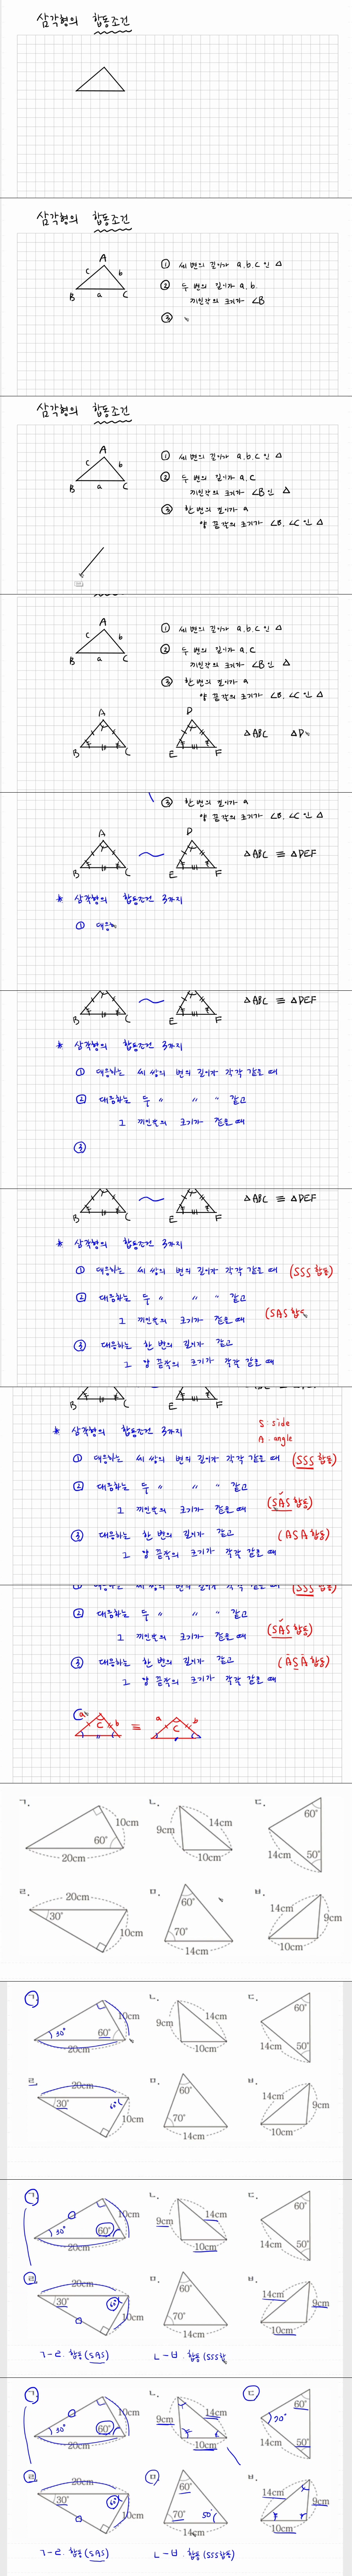 삼각형의 합동조건
삼각형의 합동조건
A
c b
B a C
① 세 변의 길이가 a.b.c 인 △
② 두 변의 길이가 a.b.
끼인각의 크기가 ∠B
③
삼각형의 합동조건
A
c b
B a C
① 세 변의 길이가 a.b.c 인 △
② 두 변의 길이가 a.c
끼인각의 크기가 ∠B인 △
③ 한 변의 길이가 a
양 끝각의 크기가 ∠B. ∠C 인 △
A
c b
B a C
① 세 변의 길이가 a.b.c 인 △
② 두 변의 길이가 a.c
끼인각의 크기가 ∠B인 △
③ 한 변의 길이가 a
양 끝각의 크기가 ∠B. ∠C 인 △
A D
B C E F
△ABC △D
③ 한 변의 길이가 a
양 끝각의 크기가 ∠B. ∠C 인 △
A D
B C ~ E F
△ABC ≡ △DEF
* 삼각형의 합동조건 3가지
① 대응하
B C ~ E F
△ABC ≡ △DEF
* 삼각형의 합동조건 3가지
① 대응하는 세 쌍의 변의 길이가 각각 같을 때
② 대응하는 두 〃 〃 〃 같고
그 끼인각의 크기가 같을 때
③
B C ~ E F
△ABC ≡ △DEF
* 삼각형의 합동조건 3가지
① 대응하는 세 쌍의 변의 길이가 각각 같을 때 (SSS 합동)
② 대응하는 두 〃 〃 〃 같고
그 끼인각의 크기가 같을 때 (SAS 합동
③ 대응하는 한 변의 길이가 같고
그 양 끝각의 크기가 각각 같을 때
B C E F
S : side
A : angle
* 삼각형의 합동조건 3가지
① 대응하는 세 쌍의 변의 길이가 각각 같을 때 (SSS 합동)
② 대응하는 두 〃 〃 〃 같고
그 끼인각의 크기가 같을 때 (SAS 합동)
③ 대응하는 한 변의 길이가 같고 (ASA 합동)
그 양 끝각의 크기가 각각 같을 때
① 대응하는 세 쌍의 변의 길이가 각각 같을 때 (SSS 합동)
② 대응하는 두 〃 〃 〃 같고
그 끼인각의 크기가 같을 때 (SAS 합동)
③ 대응하는 한 변의 길이가 같고 (ASA 합동)
그 양 끝각의 크기가 각각 같을 때
a C b ≡ a C b
ㄱ. 10cm 60° 20cm
ㄴ. 9cm 14cm 10cm
ㄷ. 60° 14cm 50°
ㄹ. 20cm 30° 10cm
ㅁ. 60° 70° 14cm
ㅂ. 14cm 9cm 10cm
ㄱ. 10cm 30° 60° 20cm
ㄴ. 9cm 14cm 10cm
ㄷ. 60° 14cm 50°
ㄹ. 20cm 30° 60° 10cm
ㅁ. 60° 70° 14cm
ㅂ. 14cm 9cm 10cm
ㄱ. 10cm 30° 60° 20cm
ㄴ. 9cm 14cm 10cm
ㄷ. 60° 14cm 50°
ㄹ. 20cm 30° 60° 10cm
ㅁ. 60° 70° 14cm
ㅂ. 14cm 9cm 10cm
ㄱ-ㄹ. 합동 (SAS) ㄴ-ㅂ. 합동 (SSS합
ㄱ. 10cm 30° 60° 20cm
ㄴ. 9cm 14cm 10cm
ㄷ. 60° 70° 14cm 50°
ㄹ. 20cm 30° 60° 10cm
ㅁ. 60° 70° 50° 14cm
ㅂ. 14cm 9cm 10cm
ㄱ-ㄹ. 합동 (SAS) ㄴ-ㅂ. 합동 (SSS합동)